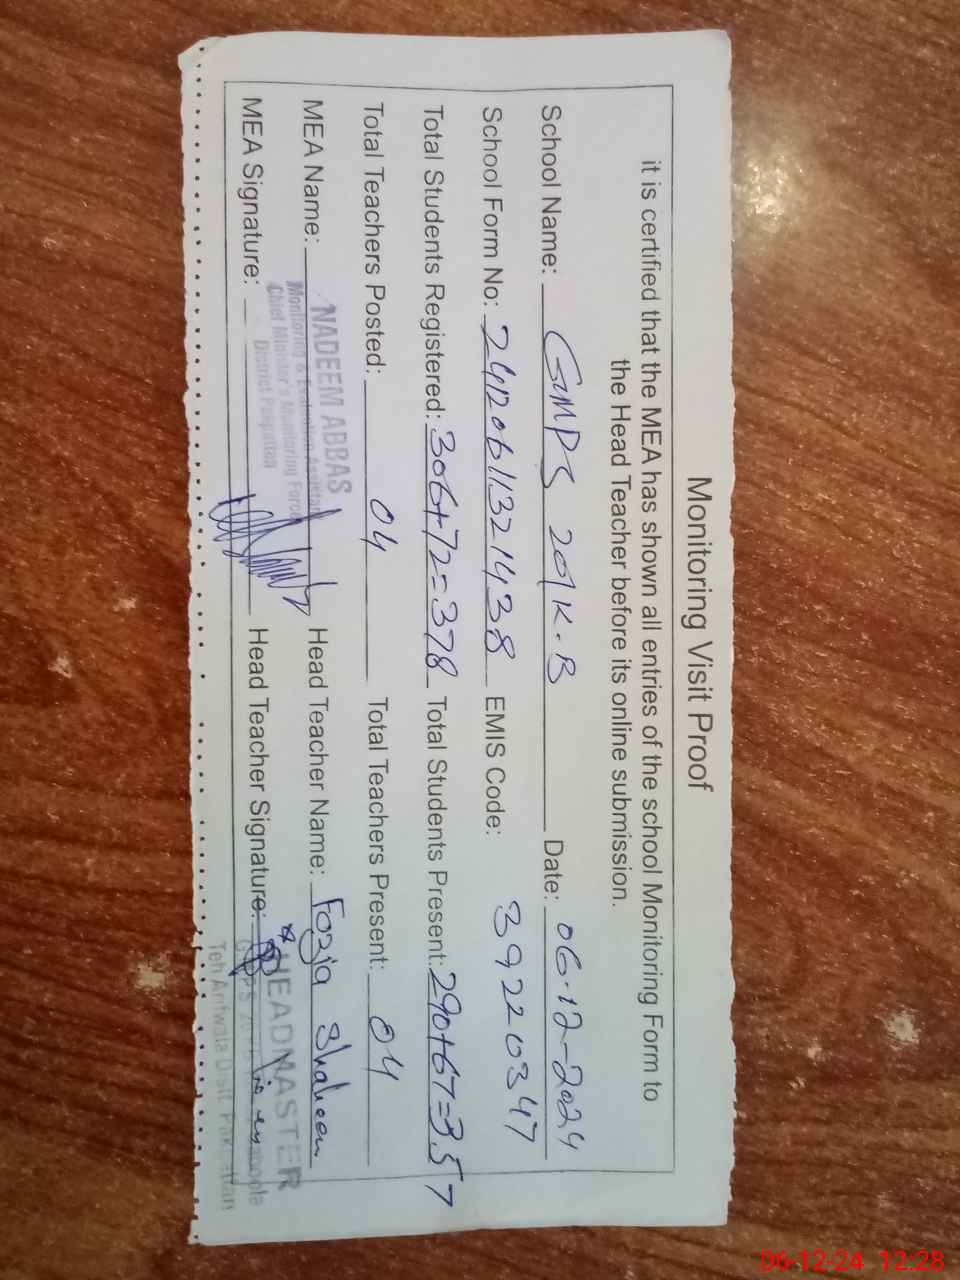 Monitoring Visit Proof
it is certified that the MEA has shown all entries of the school Monitoring Form to
the Head Teacher before its online submission.
School Name: GMPS 201 K.B Date: 06-12-2024
School Form No: 2412061321438 EMIS Code: 39220347
Total Students Registered: 306+72=378 Total Students Present: 290+67=357
Total Teachers Posted: 04 Total Teachers Present: 04
MEA Name: NADEEM ABBAS Head Teacher Name: Fozja Shaheen
Monitoring & Evaluation Assistant
Chief Minister's Monitoring Force
District Pakpattan
MEA Signature: Head Teacher Signature:
HEADMASTER
Teh Arifwala Distt. Pakpattan
06-12-24 12:28